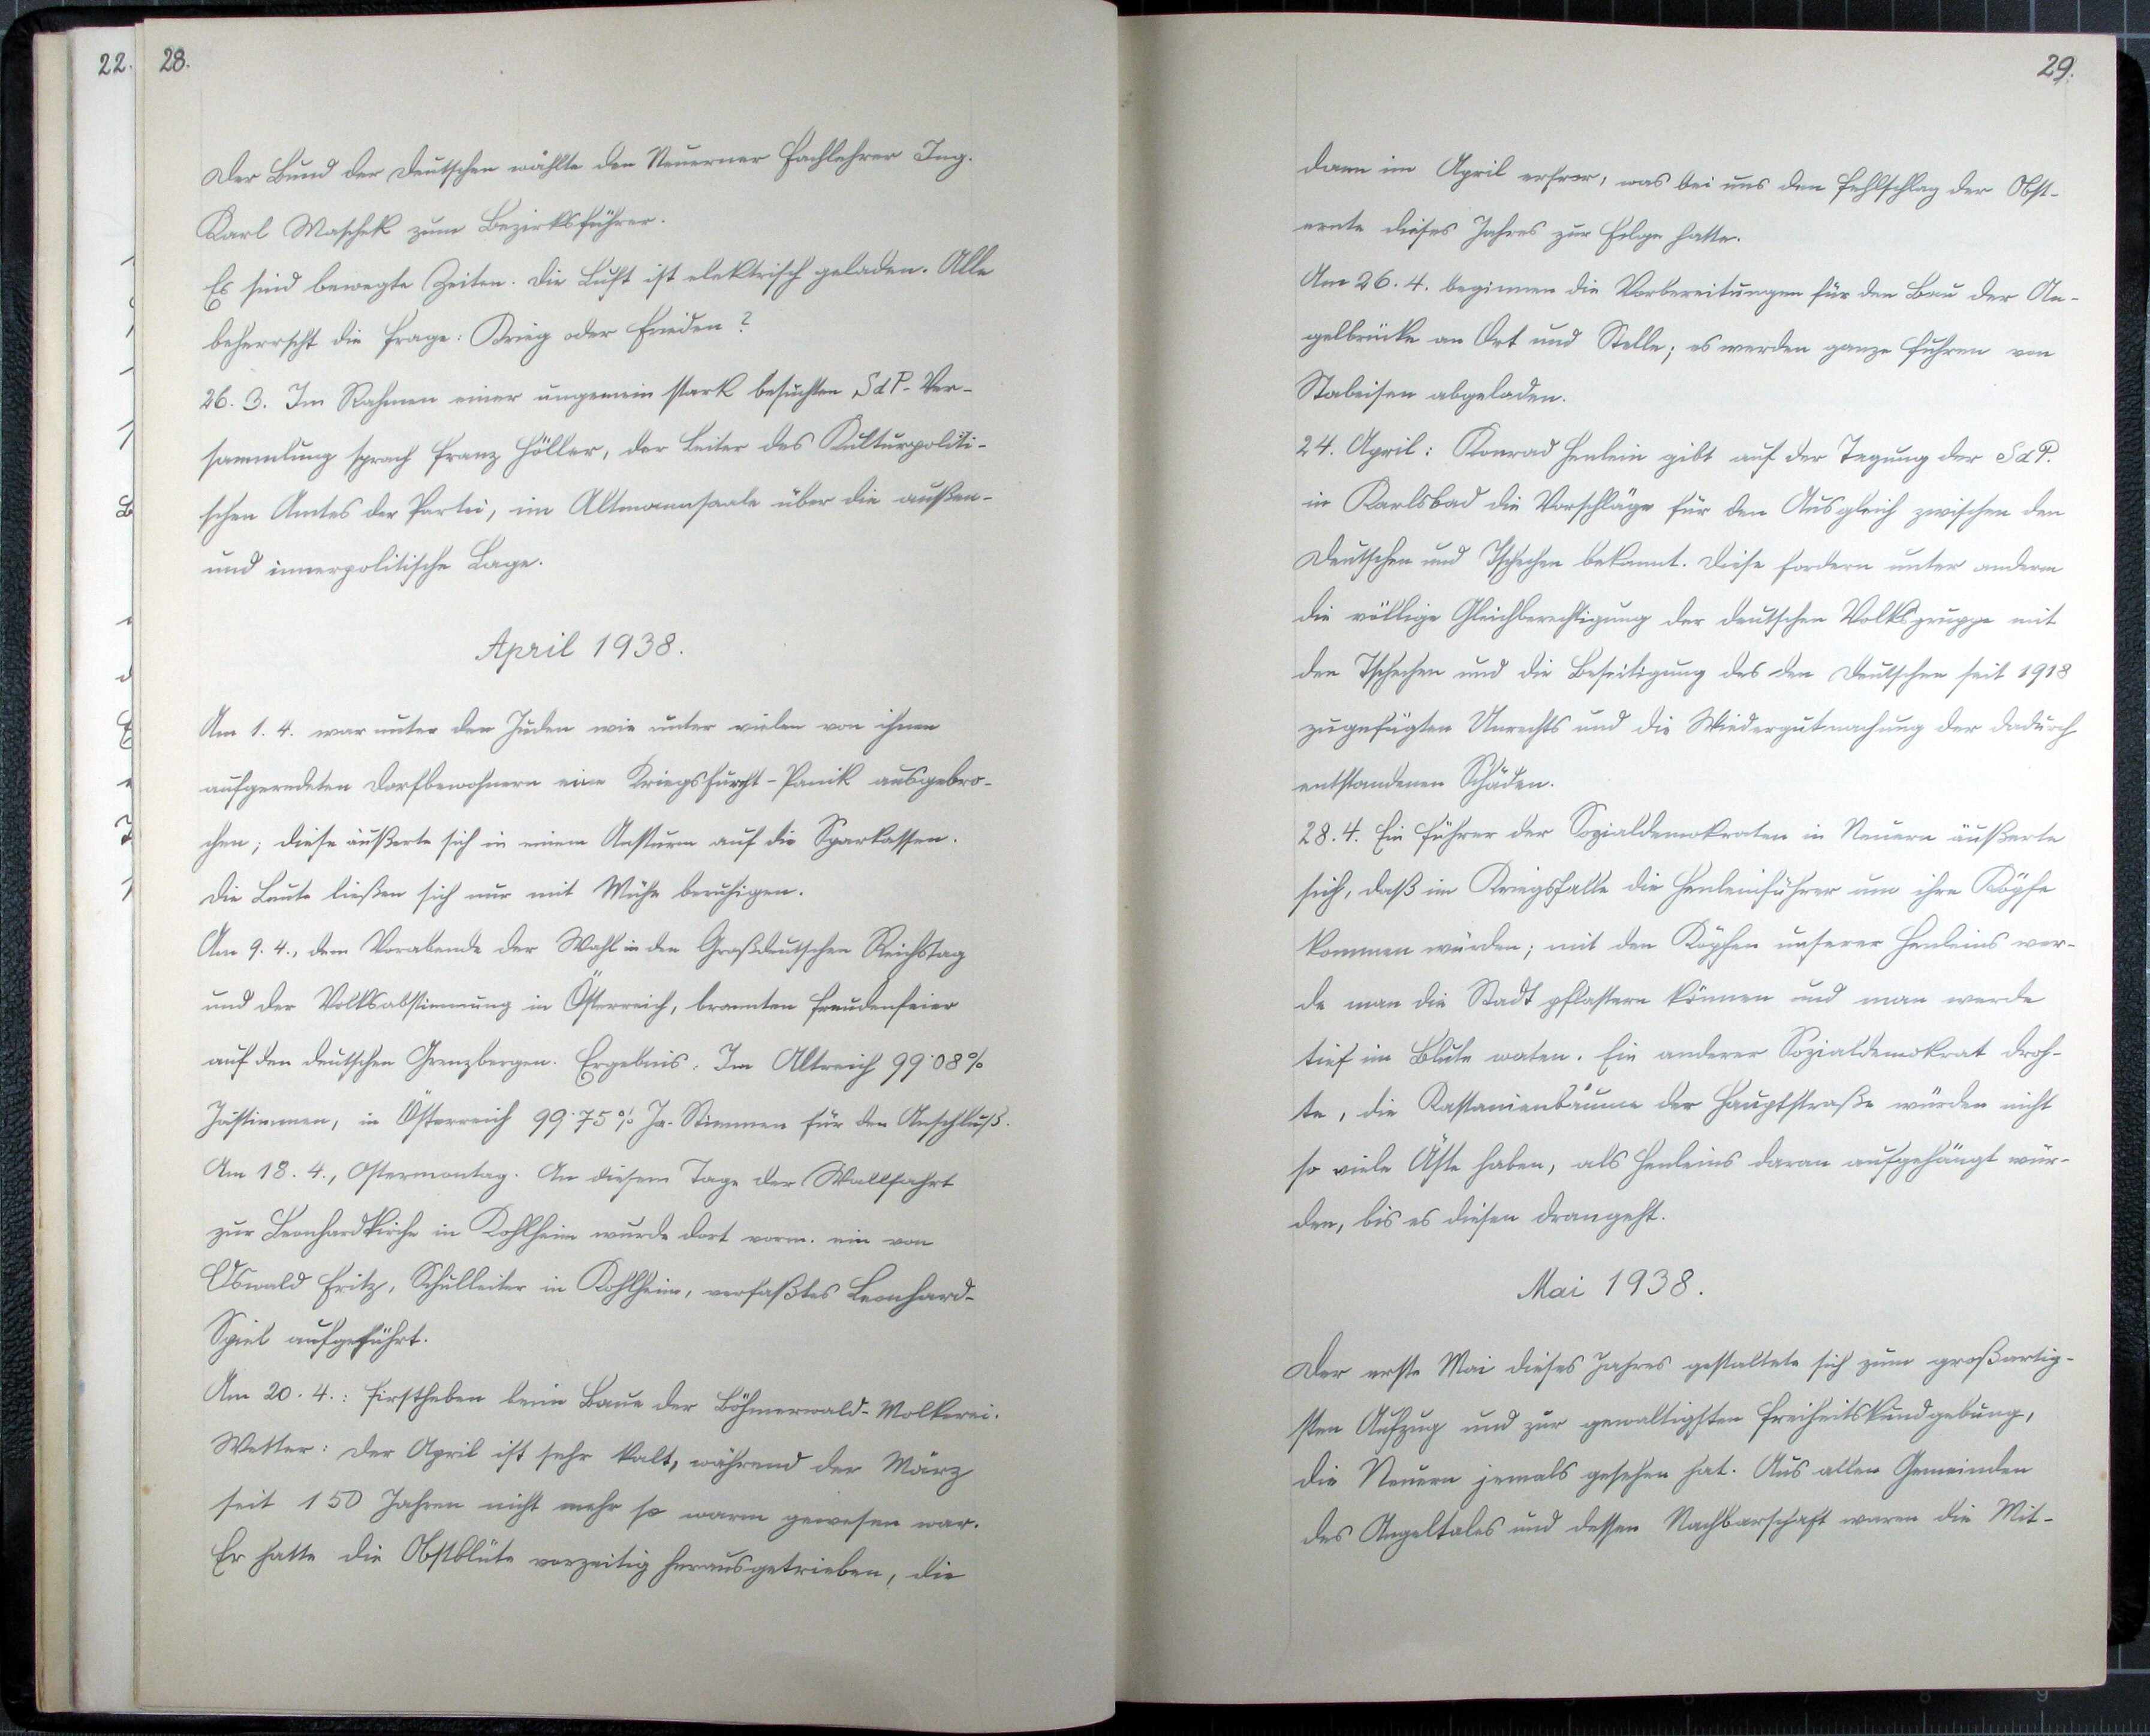 22.
28.
Der Bund der Deutschen wählte den Neuerner Fachlehrer Ing.
Karl Maschek zum Bezirksführer.
Es sind bewegte Zeiten. Die Luft ist elektrisch geladen. Alle
beherrscht die Frage: Krieg oder Frieden?
26. 3. Im Rahmen einer ungemein stark besuchten SdP-Ver-
sammlung sprach Franz Höller, der Leiter des Kulturpoliti-
schen Amtes der Partei, im Altmannsaale über die außen-
und innerpolitische Lage.
April 1938.
Am 1. 4. war unter den Juden wie unter vielen von ihnen
aufgeredeten Dorfbewohnern eine Kriegsfurcht-Panik ausgebro-
chen; diese äußerte sich in einem Ansturm auf die Sparkassen.
Die Leute ließen sich nur mit Mühe beruhigen.
Am 9. 4., dem Vorabende der Wahl in den Großdeutschen Reichstag
und der Volksabstimmung in Österreich, brannten Freudenfeier
auf den deutschen Grenzbergen. Ergebnis: Im Altreich 99·08%
Jastimmen, in Österreich 99·75% Ja-Stimmen für den Anschluß.
Am 18. 4., Ostermontag. An diesem Tage der Wallfahrt
zur Leonhardkirche in Kohlheim wurde dort vorm. ein von
Oswald Fritz, Schulleiter in Kohlheim, verfaßtes Leonhard-
Spiel aufgeführt.
Am 20. 4.: Firstheben beim Baue der Böhmerwald-Molkerei.
Wetter: Der April ist sehr kalt, während der März
seit 150 Jahren nicht mehr so warm gewesen war.
Er hatte die Obstblüte vorzeitig herausgetrieben, die
29.
dann im April erfror, was bei uns den Fehlschlag der Obst-
ernte dieses Jahres zur Folge hatte.
Am 26. 4. beginnen die Vorbereitungen für den Bau der An-
gelbrücke an Ort und Stelle; es werden ganze Fuhren von
Stabeisen abgeladen.
24. April: Konrad Henlein gibt auf der Tagung der SdP.
in Karlsbad die Vorschläge für den Ausgleich zwischen den
Deutschen und Tschechen bekannt. Diese fordern unter anderm
die völlige Gleichberechtigung der deutschen Volksgruppe mit
den Tschechen und die Beseitigung des den Deutschen seit 1918
zugefügten Unrechts und die Wiedergutmachung der dadurch
entstandenen Schäden.
28. 4. Ein Führer der Sozialdemokraten in Neuern äußerte
sich, daß im Kriegsfalle die Henleinführer um ihre Köpfe
kommen würden; mit den Köpfen unserer Henleins wer-
de man die Stadt pflastern können und man werde
tief im Blute waten. Ein anderer Sozialdemokrat droh-
te, die Kastanienbäume der Hauptstraße würden nicht
so viele Äste haben, als Henleins daran aufgehängt wür-
den, bis es diesen drangeht.
Mai 1938.
Der erste Mai dieses Jahres gestaltete sich zum großartig-
sten Aufzug und zur gewaltigsten Freiheitskundgebung,
die Neuern jemals gesehen hat. Aus allen Gemeinden
des Angeltales und dessen Nachbarschaft waren die Mit-